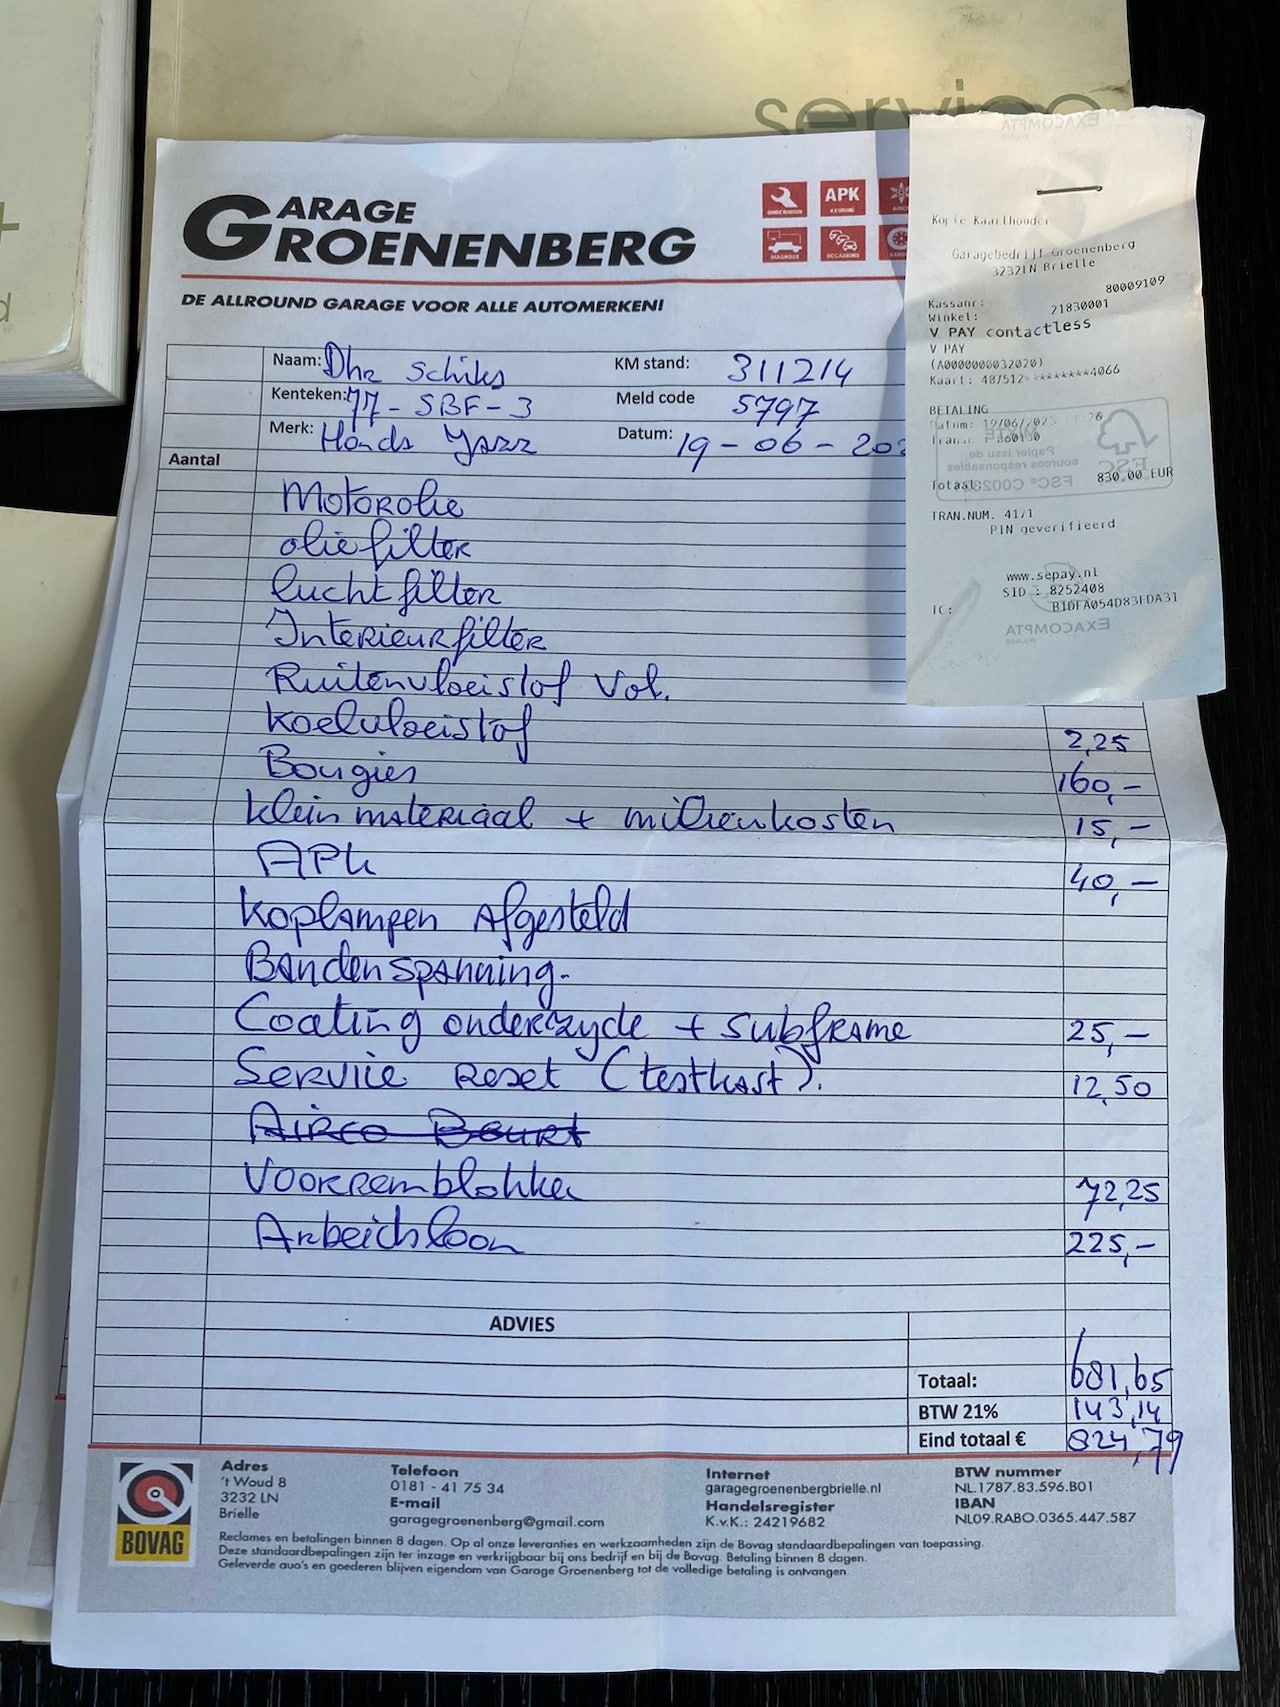 service
GARAGE
GROENENBERG
ONDERHOUD
APK
KEURING
DIAGNOSE
OCCASIONS
DE ALLROUND GARAGE VOOR ALLE AUTOMERKEN!
Naam: Dhr Schiks
KM stand: 311214
Kenteken: 77-SBF-3
Meld code 5797
Merk: Honda Jazz
Datum: 19-06-202
Aantal
Motorolie
oliefilter
luchtfilter
Interieurfilter
Ruitenvloeistof Vol.
Koelvloeistof 2,25
Bougies 160,-
klein materiaal + milieukosten 15,-
APK 40,-
Koplampen Afgesteld
Bandenspanning.
Coating onderzyde + subframe 25,-
Service Reset (testkast). 12,50
Airco Beurt
Voorremblokken 72,25
Arbeidsloon 225,-
ADVIES
Totaal: 681,65
BTW 21% 143,14
Eind totaal € 824,79
BOVAG
Adres
't Woud 8
3232 LN
Brielle
Telefoon
0181 - 41 75 34
E-mail
garagegroenenberg@gmail.com
Internet
garagegroenenbergbrielle.nl
Handelsregister
K.v.K.: 24219682
BTW nummer
NL.1787.83.596.B01
IBAN
NL09.RABO.0365.447.587
Reclames en betalingen binnen 8 dagen. Op al onze leveranties en werkzaamheden zijn de Bovag standaardbepalingen van toepassing.
Deze standaardbepalingen zijn ter inzage en verkrijgbaar bij ons bedrijf en bij de Bovag. Betaling binnen 8 dagen.
Geleverde auo's en goederen blijven eigendom van Garage Groenenberg tot de volledige betaling is ontvangen.
EXACOMPTA
PARIS
Kopie Kaarthouder
Garagebedrijf Groenenberg
3232LN Brielle
Kassanr: 80009109
Winkel: 21830001
V PAY contactless
V PAY
(A0000000032020)
Kaart: 487512*********4066
BETALING
Datum: 19/06/2023
Trans.:
MIXTE
Papier issu de
sources responsables
FSC® C0028
FSC
Totaal: 830,00 EUR
TRAN.NUM. 4171
PIN geverifieerd
www.sepay.nl
SID : 8252408
TC: B1DFA054D83FDA31
EXACOMPTA
PARIS